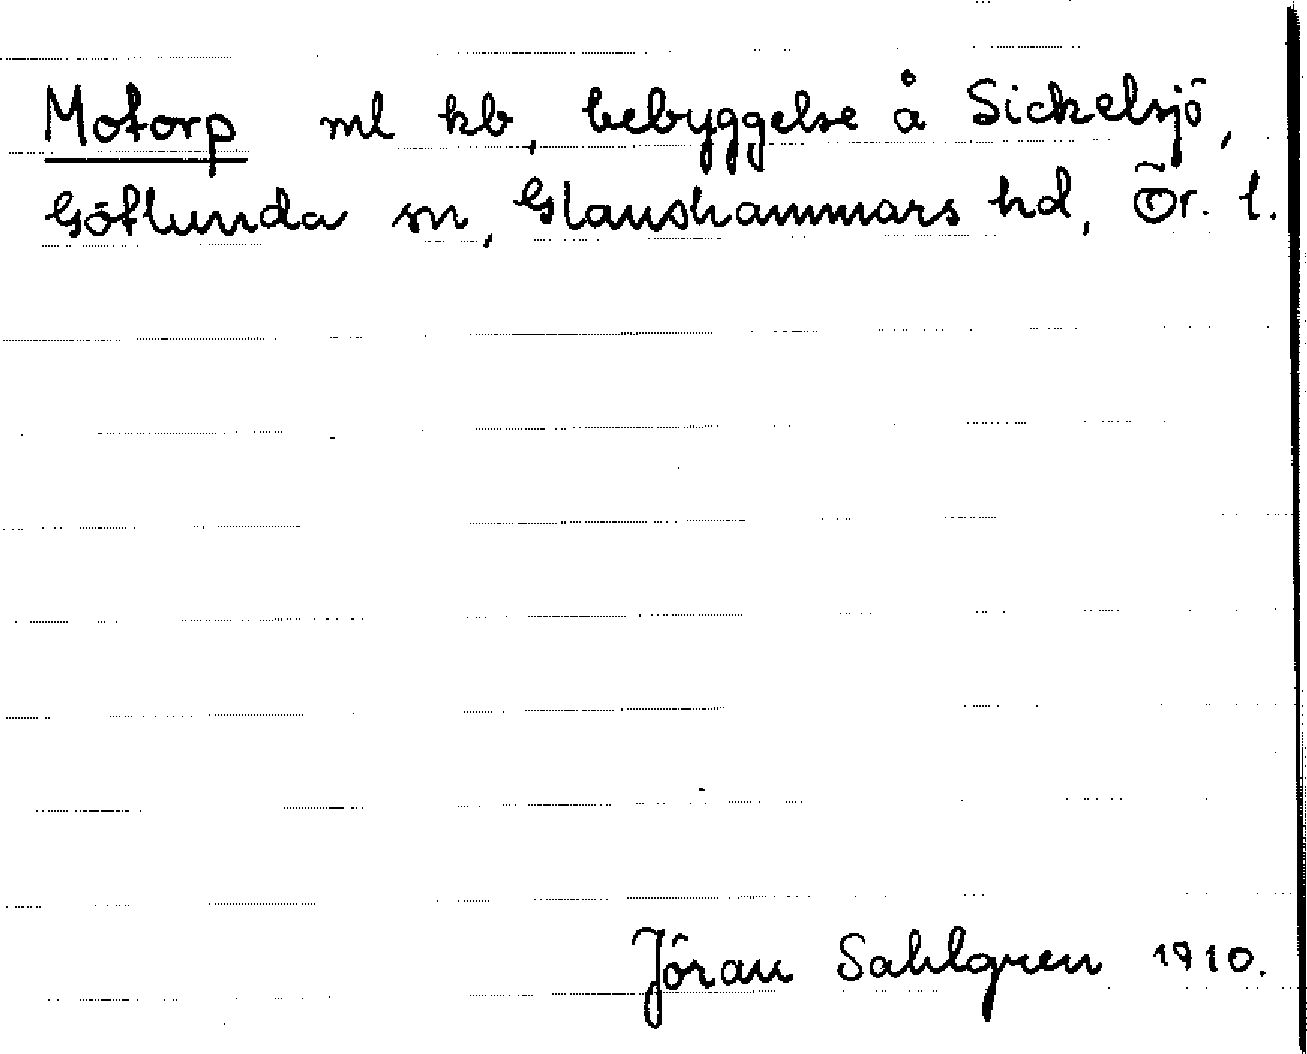 Motorp ml kb, bebyggelse å Sickelsjö,
Götlunda sn, Glanshammars hd, Ör. l.
Jöran Sahlgren 1910.